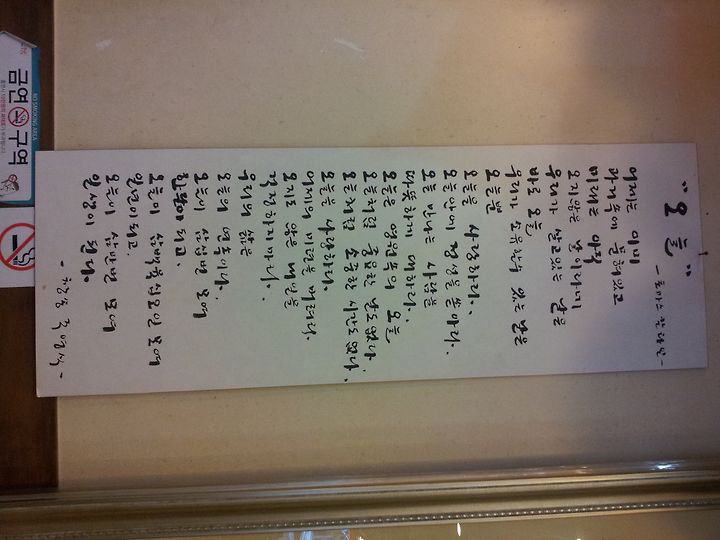 "오 늘"
- 토마스 칼라일 -
어제는 이미
과거 속에 묻혀 있고
미래는 아직
오지 않은 날이라네
우리가 살고 있는 날은
바로 오늘
우리가 소유할 수 있는 날은
오늘뿐
오늘을 사랑하라.
오늘에 정성을 쏟아라.
오늘 만나는 사람을
따뜻하게 대하라.
오늘은 영원 속의 오늘
오늘처럼 중요한 날도 없다.
오늘처럼 소중한 시간도 없다.
오늘을 사랑하라.
어제의 미련을 버려라.
오지도 않은 내일을
걱정하지 마라.
우리의 삶은
오늘의 연속이다.
오늘이 삼십 번 모여
한달이 되고.
오늘이 삼백육십다섯 번 모여
일년이 되고.
오늘이 삼만 번 모여
일생이 된다.
금연구역
NO SMOKING AREA